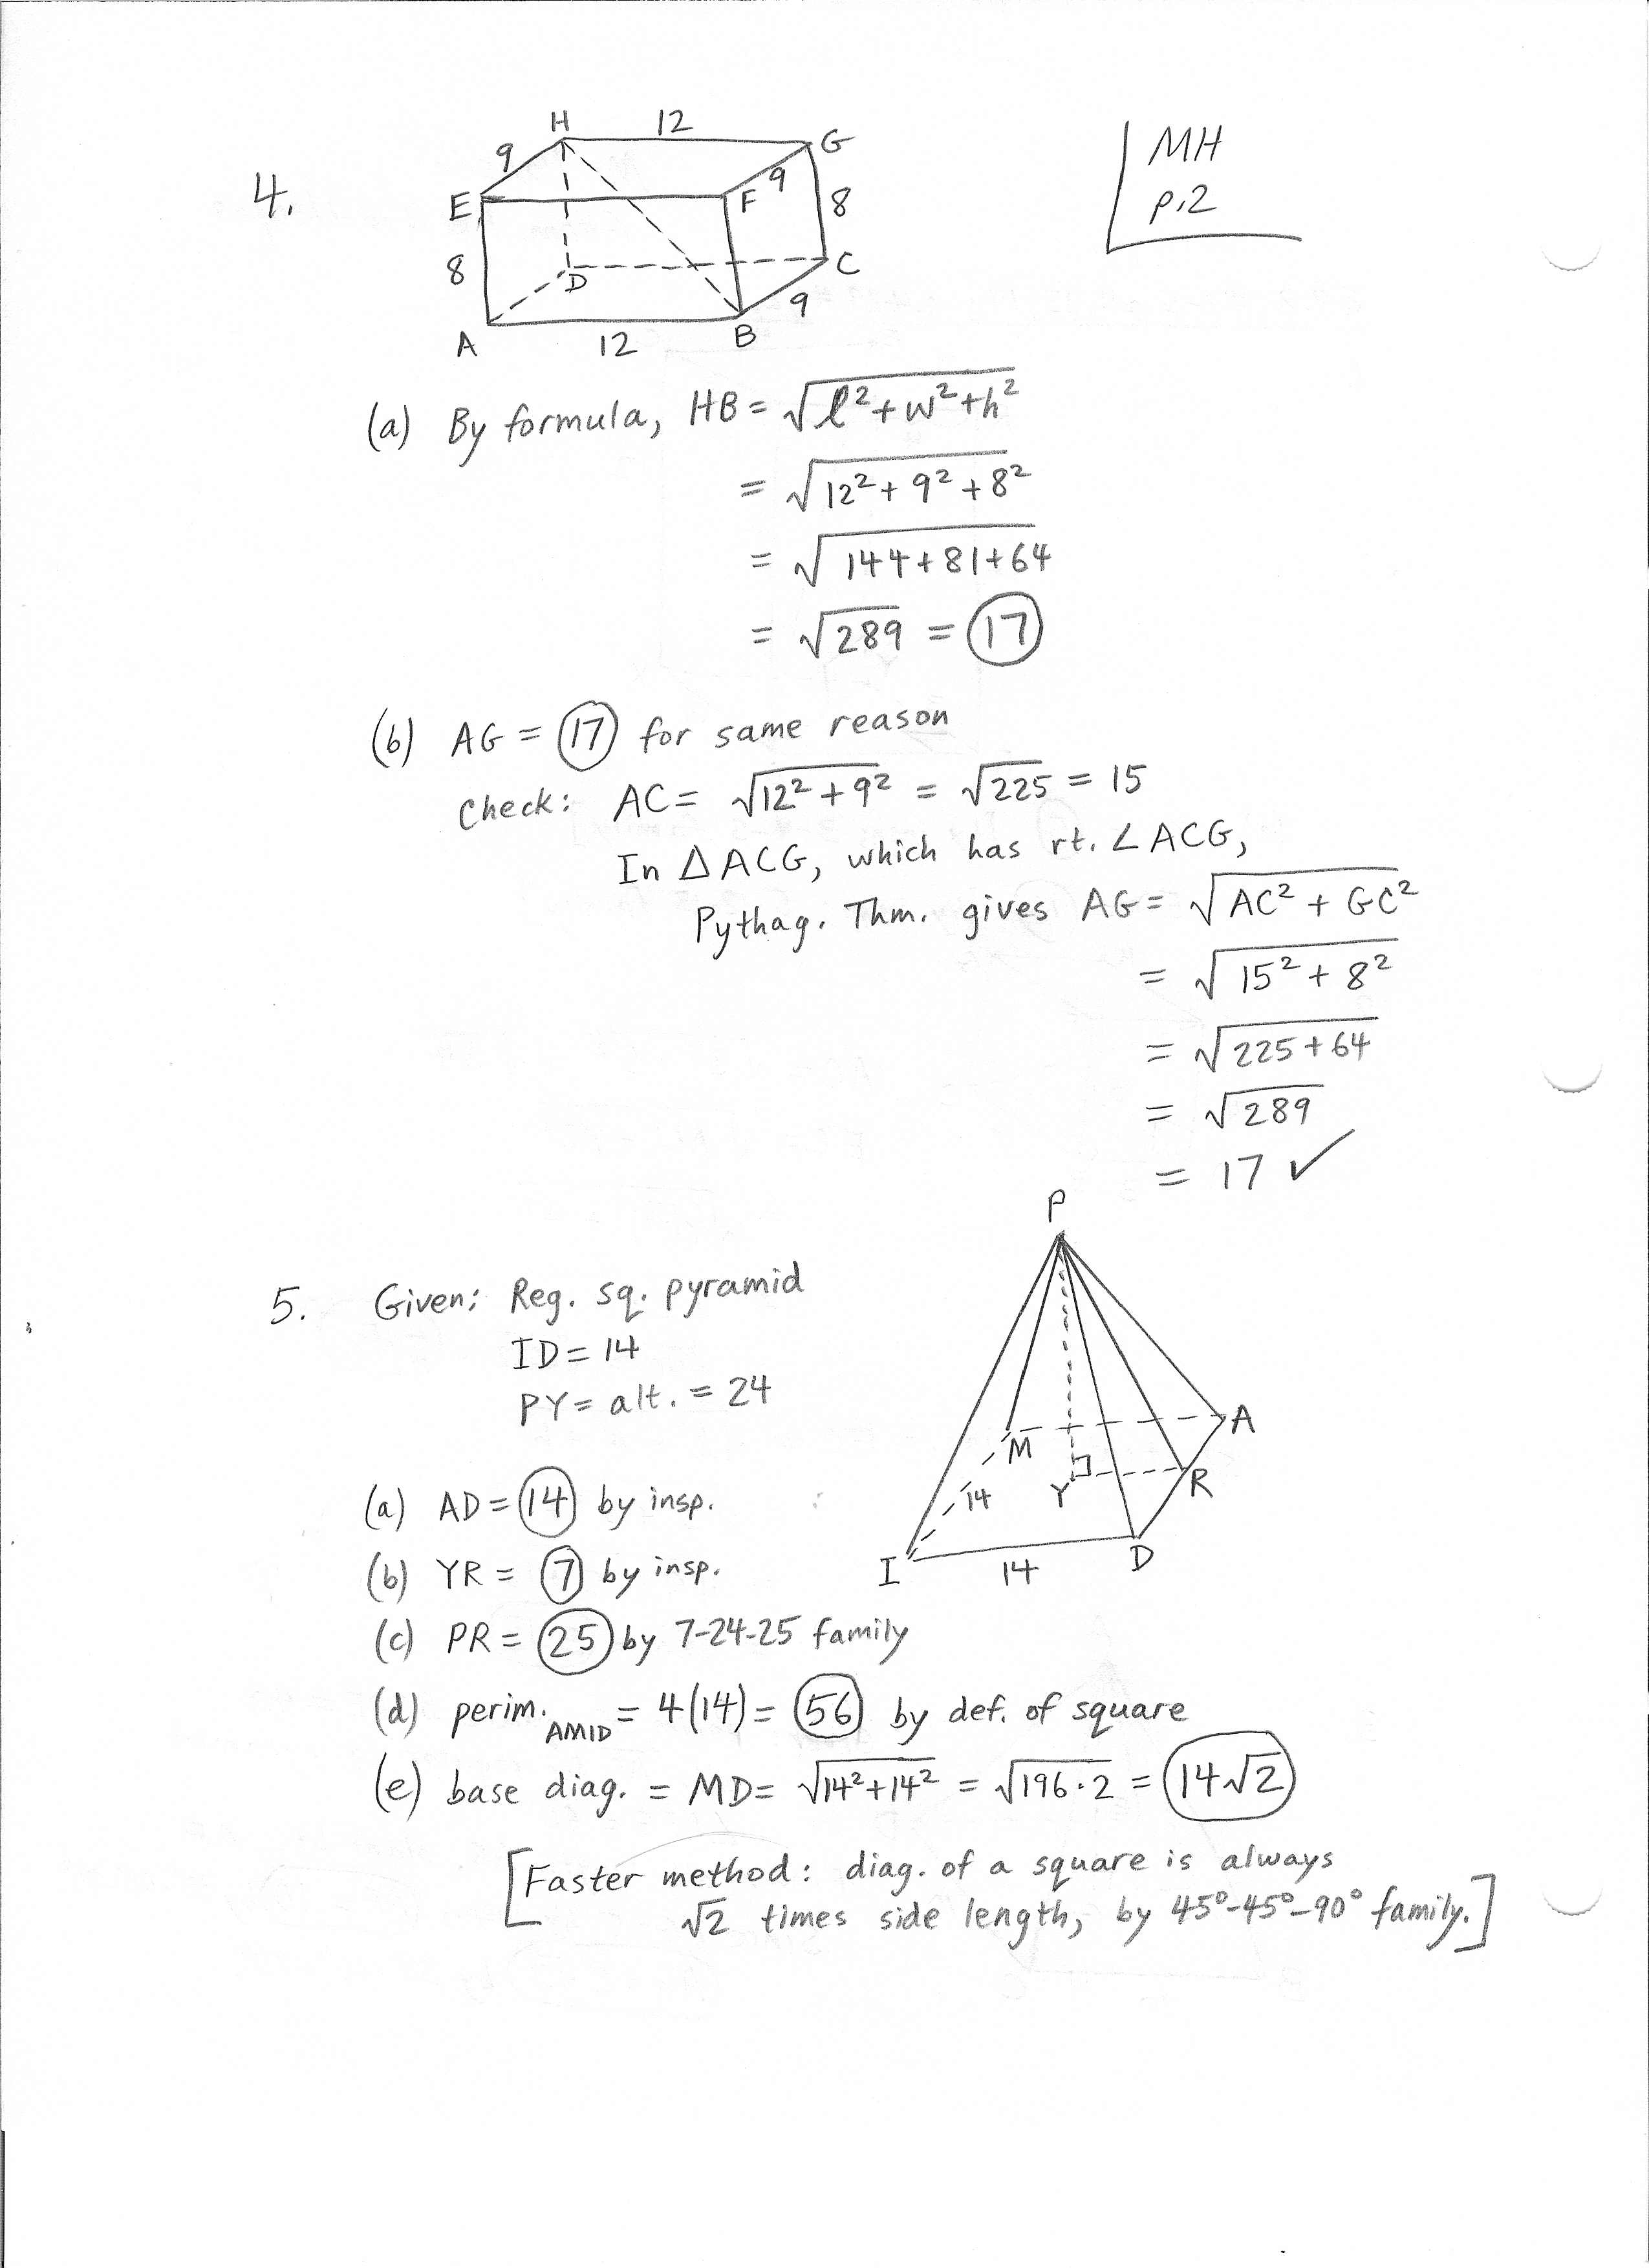 MH
p.2
4.
H 12 G
9 9
E F 8
8 D C
9
A 12 B
(a) By formula, HB = √(l² + w² + h²)
= √(12² + 9² + 8²)
= √(144 + 81 + 64)
= √289 = 17
(b) AG = 17 for same reason
Check: AC = √(12² + 9²) = √225 = 15
In △ACG, which has rt. ∠ACG,
Pythag. Thm. gives AG = √(AC² + GC²)
= √(15² + 8²)
= √(225 + 64)
= √289
= 17 ✓
5. Given: Reg. sq. pyramid
ID = 14
PY = alt. = 24
P
M A
14 Y R
I 14 D
(a) AD = 14 by insp.
(b) YR = 7 by insp.
(c) PR = 25 by 7-24-25 family
(d) perim. AMID = 4(14) = 56 by def. of square
(e) base diag. = MD = √(14² + 14²) = √(196·2) = 14√2
[Faster method: diag. of a square is always
√2 times side length, by 45°-45°-90° family.]